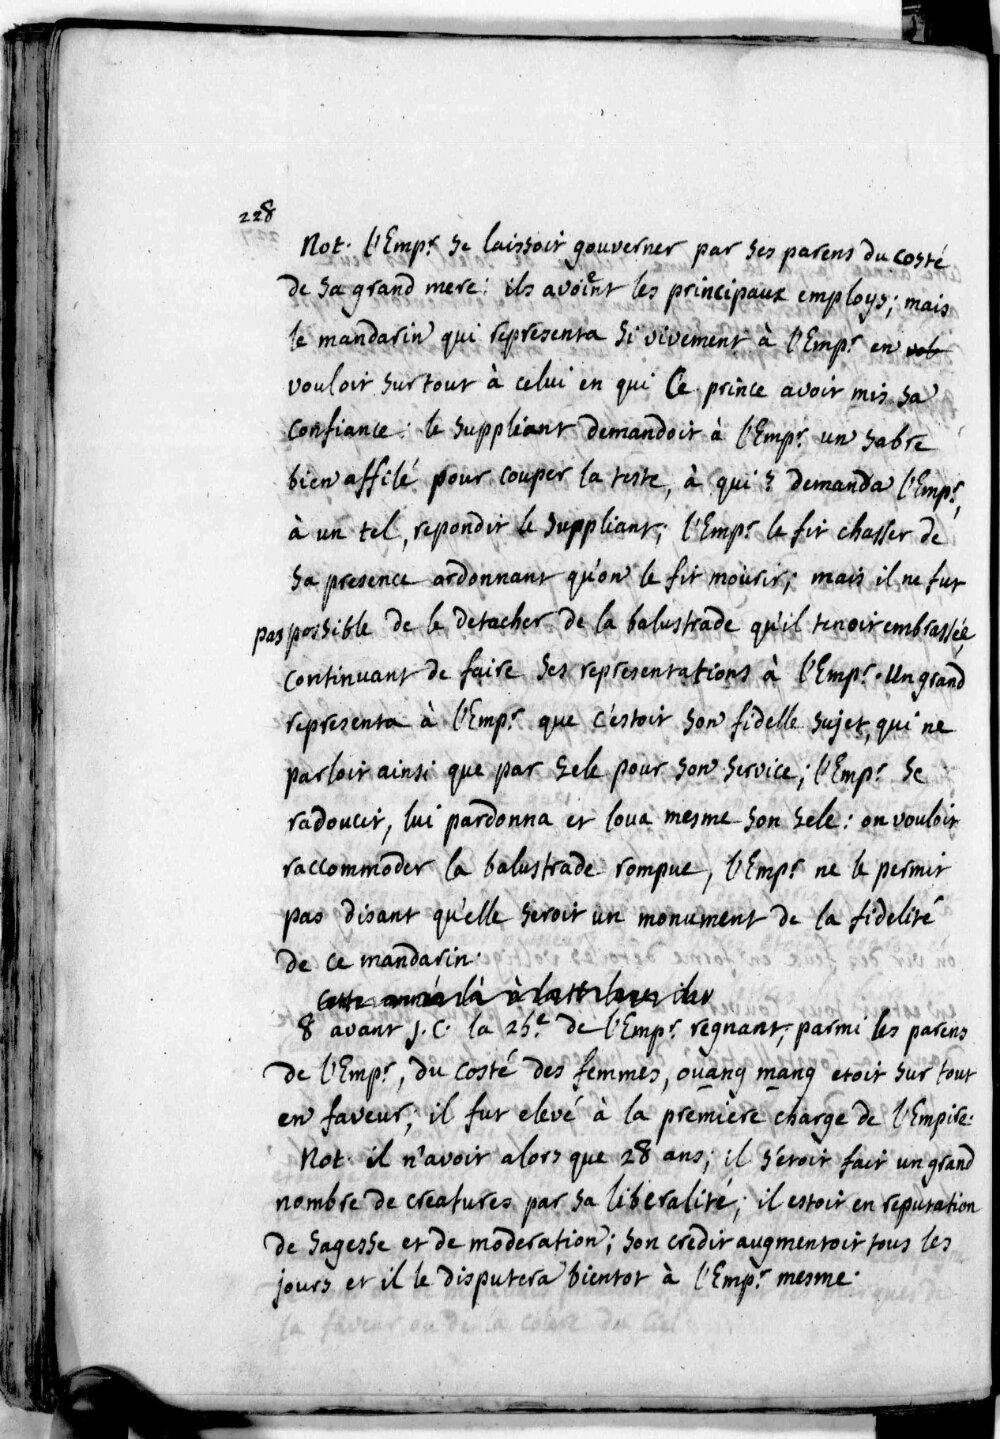 228
Not. l'Emp.r se laissoit gouverner par ses parens du costé
de sa grand mere: ils avoient les principaux employs; mais
le mandarin qui representa si vivement à l'Emp.r en
vouloit surtout à celui en qui ce prince avoit mis sa
confiance: le suppliant demandoit à l'Emp.r un sabre
bien affilé pour couper la teste, à qui? demanda l'Emp.r,
à un tel, repondit le suppliant; l'Emp.r le fit chasser de
sa presence ordonnant qu'on le fit mourir; mais il ne fut
pas possible de le detacher de la balustrade qu'il tenoit embrassée,
continuant de faire ses representations à l'Emp.r. Un grand
representa à l'Emp.r que c'estoit son fidelle sujet, qui ne
parloit ainsi que par zele pour son service; l'Emp.r se
radoucit, lui pardonna et loua mesme son zele: on vouloit
raccommoder la balustrade rompue, l'Emp.r ne le permit
pas disant qu'elle seroit un monument de la fidelité
de ce mandarin.
8 avant J.C. la 25.e de l'Emp.r regnant, parmi les parens
de l'Emp.r, du costé des femmes, ouang mang etoit sur tout
en faveur; il fut elevé à la premiere charge de l'Empire.
Not. il n'avoit alors que 28 ans; il s'etoit fait un grand
nombre de creatures par sa liberalité; il estoit en reputation
de sagesse et de moderation; son credit augmentoit tous les
jours et il le disputera bientot à l'Emp.r mesme.